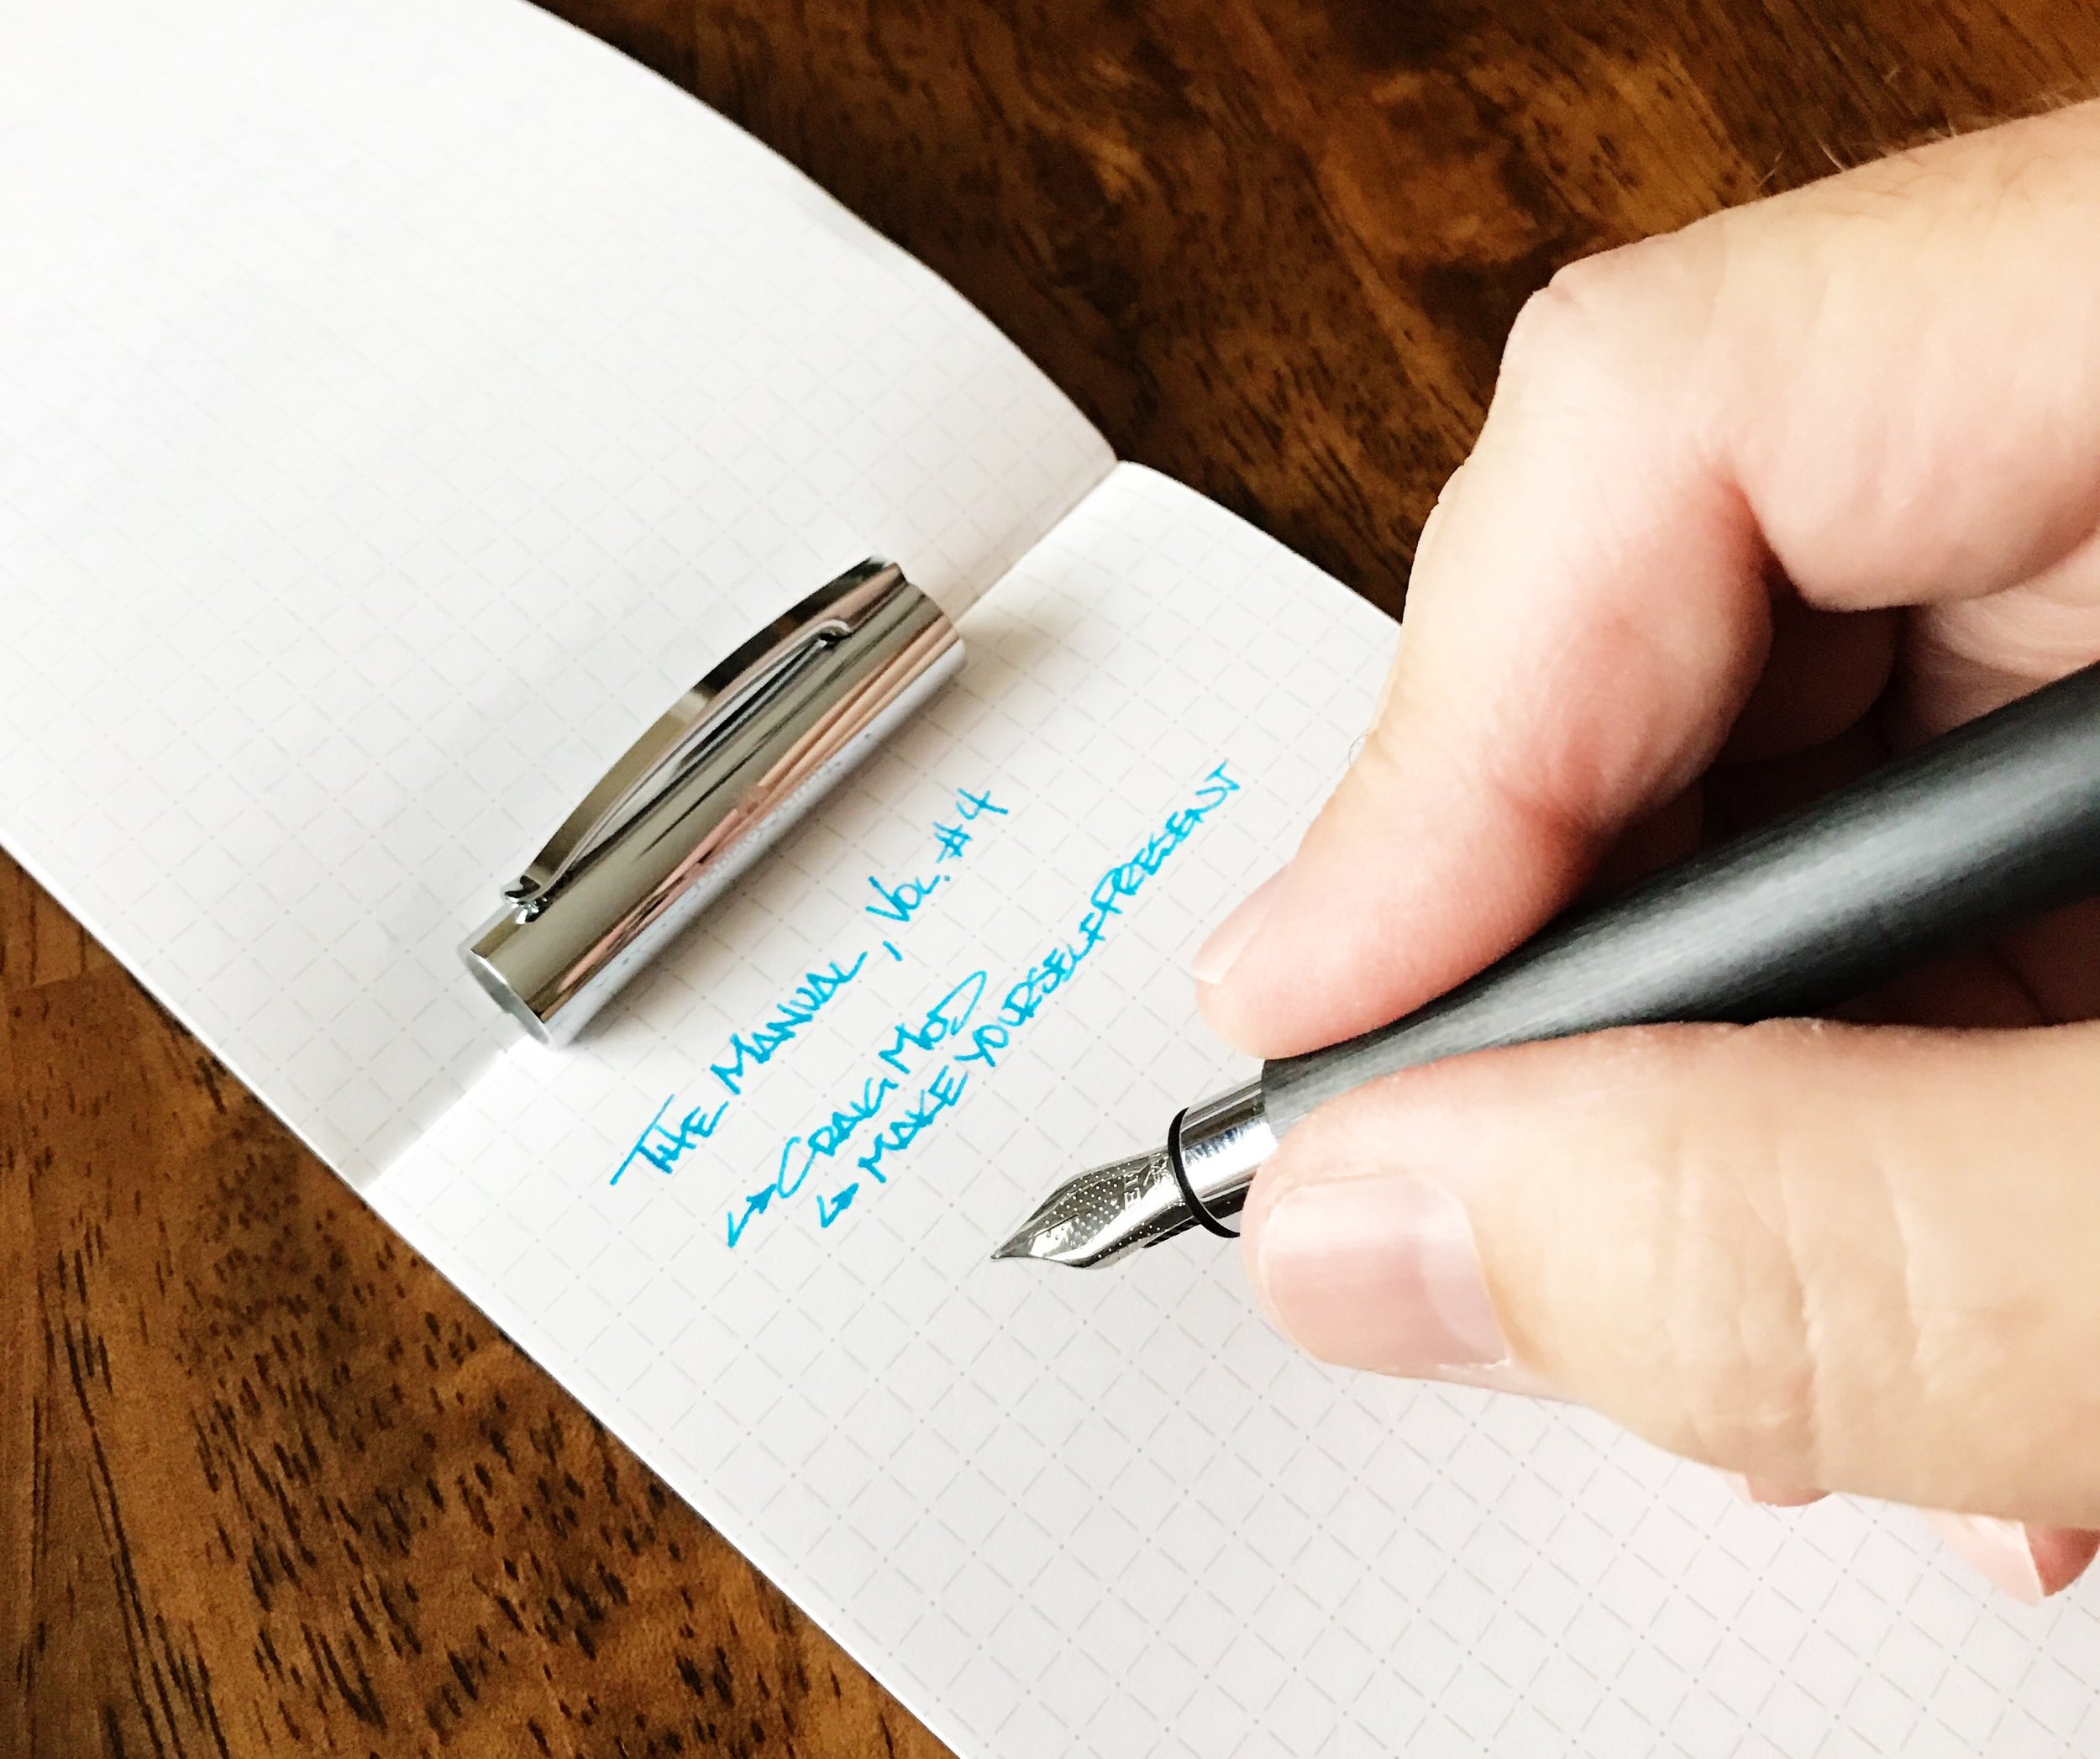 THE MANUAL, VOL. #4
↳ CRAIG MOD
↳ MAKE YOURSELF PRESENT